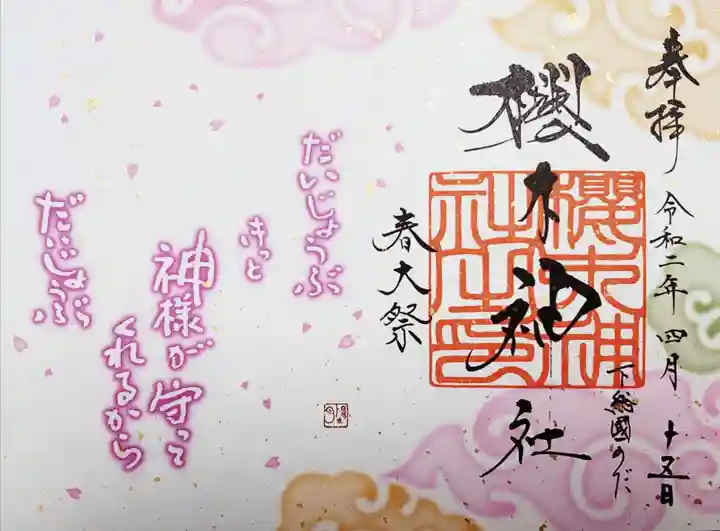 奉拝
令和二年四月十五日
下総國のだ
櫻木神社
櫻木神社之印
春大祭
だいじょうぶ
きっと
神様が守って
くれるから
だいじょぶ